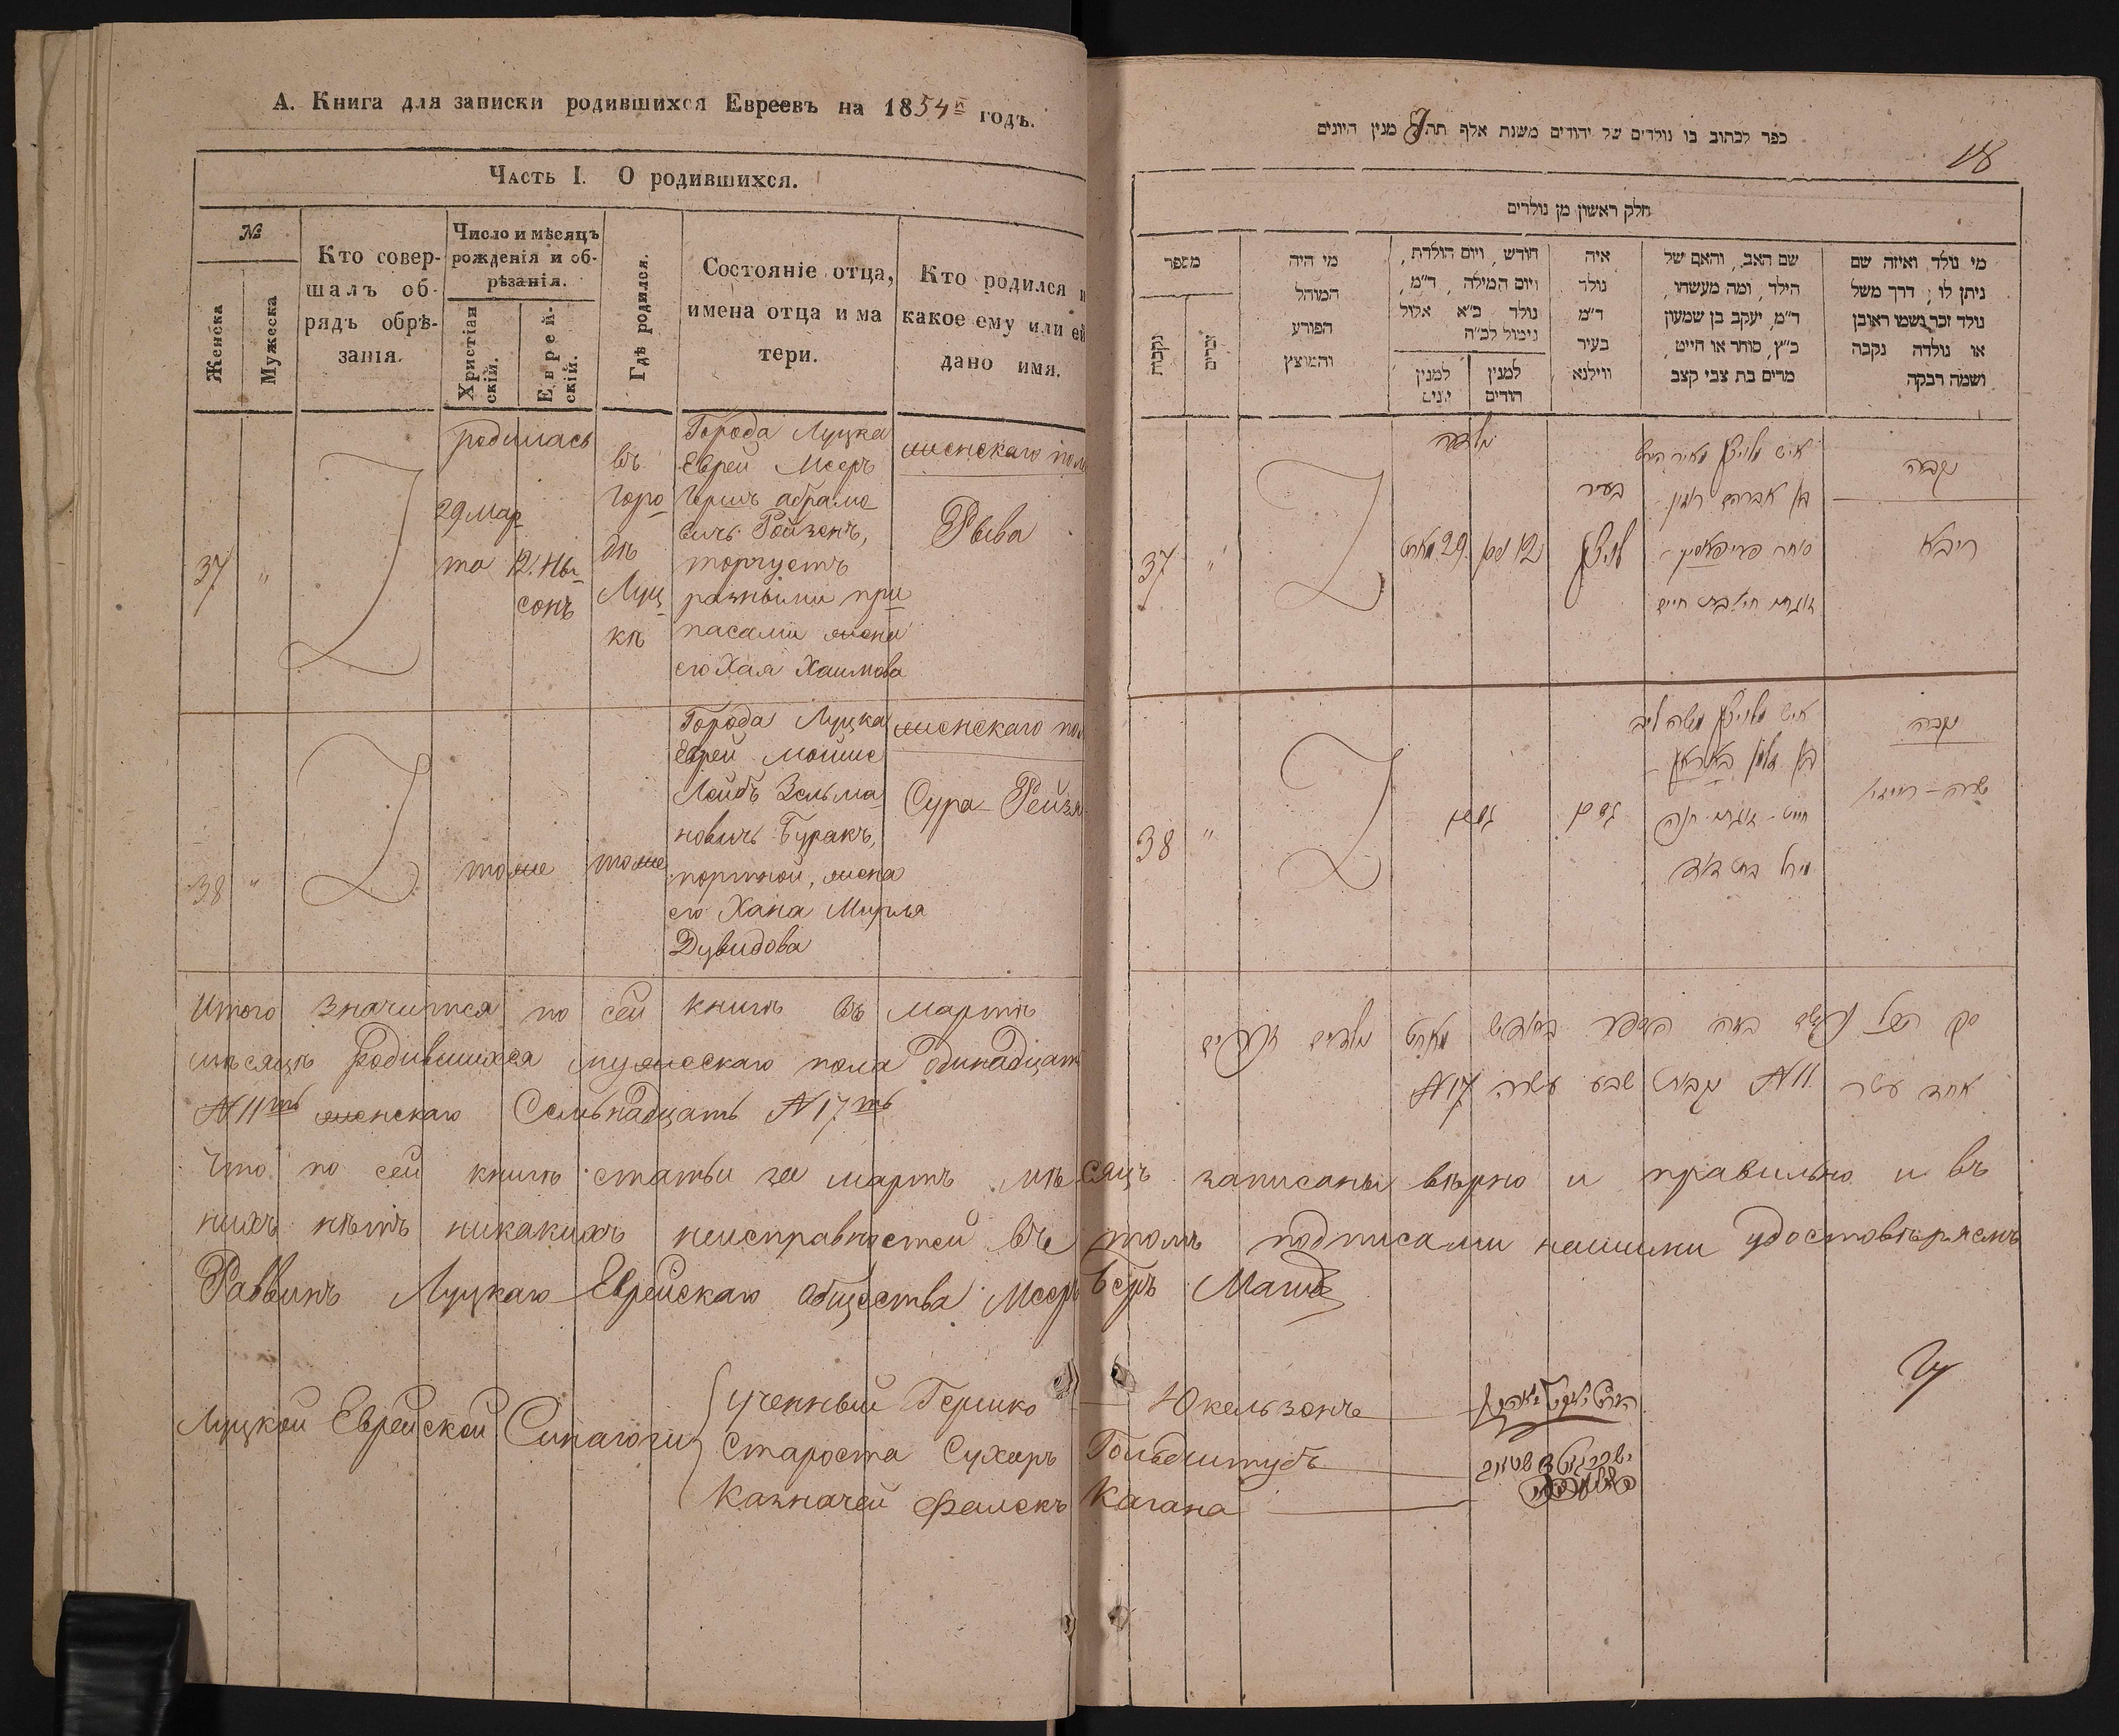 А. Книга для записки родившихся Евреевъ на 1854й годъ.
Часть I. О родившихся.
№
Женска
Мужеска
Кто совер-
шалъ об-
рядъ обрѣ-
занія.
Число и мѣсяцъ
рожденія и об-
рѣзанія.
Христіан
скій.
Еврей-
скій.
Гдѣ родился.
Состояніе отца,
имена отца и ма
тери.
Кто родился и
какое ему или ей
дано имя.
37
"
родилась
29 Мар
та
12. Ны-
сонъ
въ
Горо
дѣ
Луц
кѣ
Города Луцка
Еврей Мееръ
Гершъ абрамо
вичъ Ройзенъ,
торгуетъ
разными при
пасами жена
его Хая Хаимова
женскаго пол
Рыва
38
"
тоже
тоже
Города Луцка
Еврей Мошие
Лейбъ Зельма
новичъ Буракъ,
портной, жена
его Хана Мирля
Дувидова
женскаго пол
Сура Рейзя
Итого значится по сей книгѣ въ мартѣ
мѣсяцѣ Родившихся мужескаго пола Одинадцать
№ 11ть женскаго Семьнадцать № 17ть
Что по сей книгѣ статьи за мартъ мѣсяцъ записаны вѣрно и правильно и въ
нихъ нѣтъ никакихъ неисправностей въ томъ подписами нашими удостовѣряемъ
Раввинъ Луцкаго Еврейскаго общества Мееръ Беръ Магид
Луцкой Еврейской Синагоги
Ученный Гершко Юкельзонъ
Староста Сухеръ Гольдштубъ
Казначей Фалекъ Кагана
ספר לכתוב בו נולדים של יהודים משנת אלף תה מנין היונים
18
חלק ראשון מן נולדים
מספר
נקבות
זכרים
מי היה
המוהל
הפורע
והמוצץ
חודש, ויום הולדת,
ויום המילה, ד״מ,
נולד כ״א אלול
נימול לכ״ה
למנין
יונים
למנין
הודים
איה
נולד
ד״מ
בעיר
ווילנא
שם האב, והאם של
הילד, ומה מעשהו,
ד״מ, יעקב בן שמעון
כ״ץ, סוחר או חייט,
מרים בת צבי קצב
מי נולד ואיזה שם
ניתן לו; דרך משל
נולד זכר נשמו ראובן
או נולדה נקבה
ושמה רבקה
37
"
29 מארט
12 ניסן
בעיר
לויצק
איש מלויצק מאיר הירש
בן אברהם רויזן
נקבה
ריבא
38
"
איש מלויצק משה ליב
נקבה
אחד עשר N 11 נקבות שבע עשרה N 17